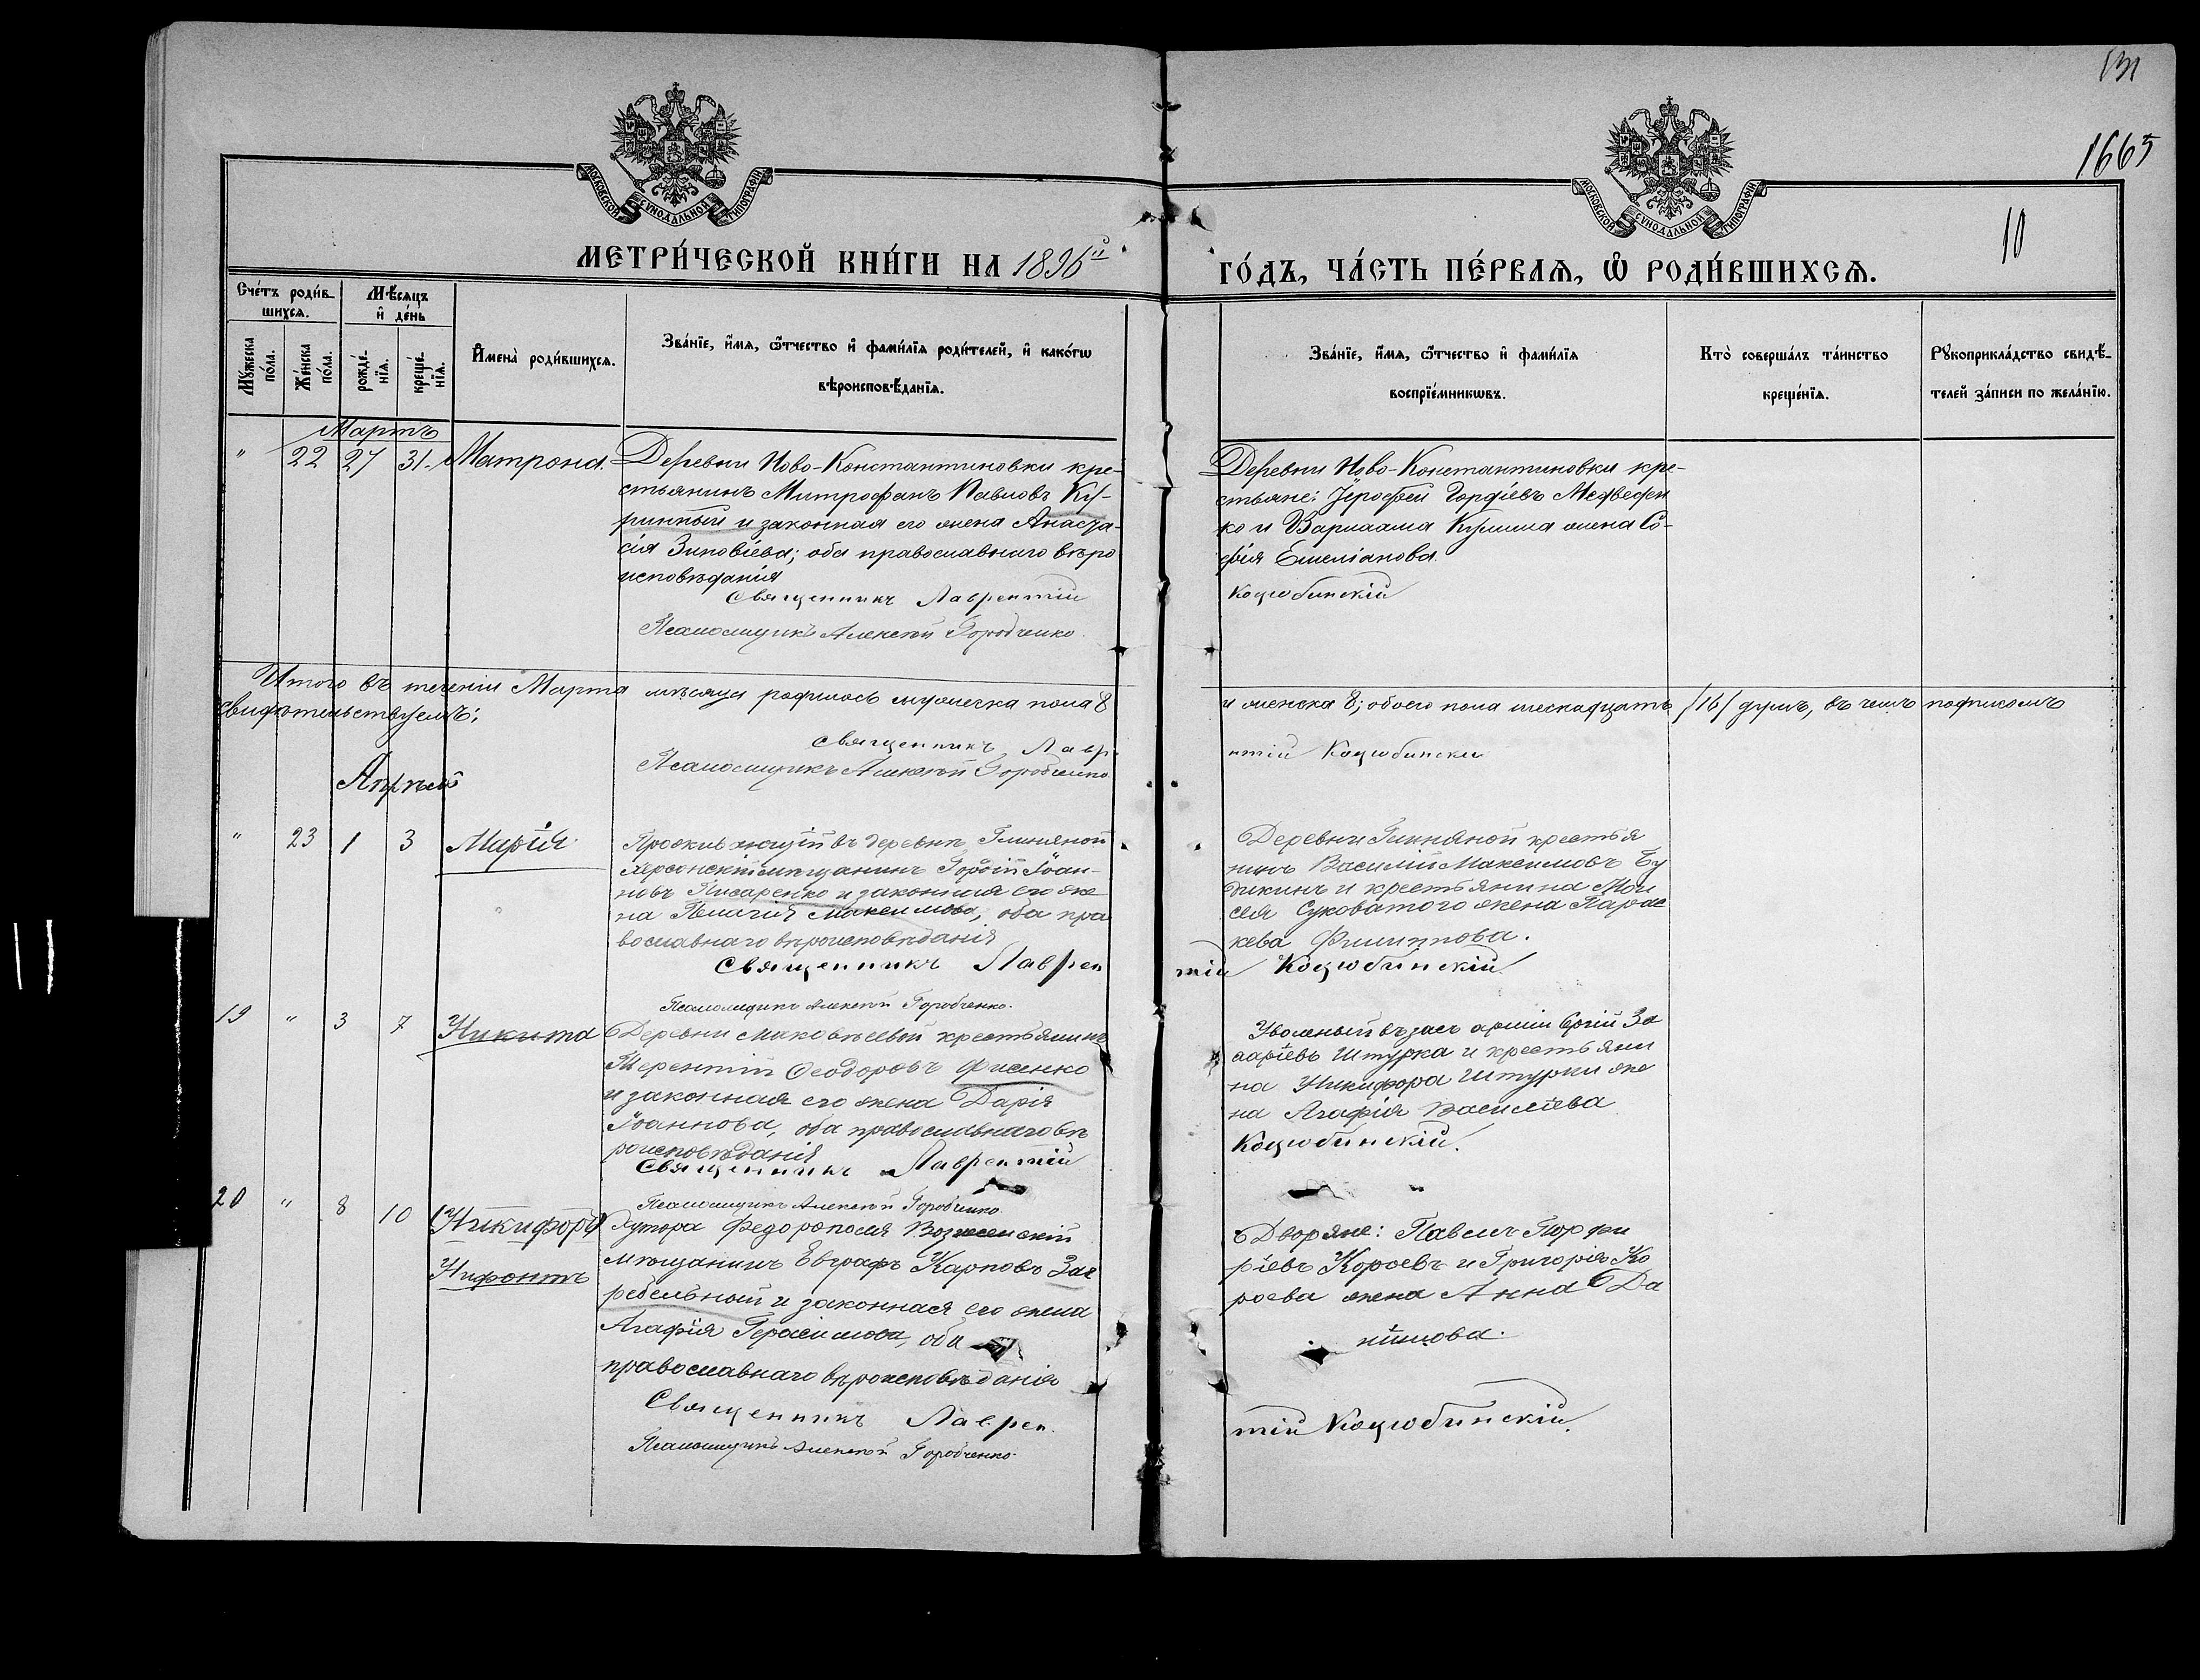 131
1665
10
МОСКОВСКОЙ СУНОДАЛЬНОЙ ТИПОГРАФІИ
МОСКОВСКОЙ СУНОДАЛЬНОЙ ТИПОГРАФІИ
МЕТРИ́ЧЕСКОЙ КНИ́ГИ НА 1896й
ГО́ДЪ, ЧА́СТЬ ПЕ́РВАѦ, Ѿ РОДИ́ВШИХСѦ.
Сче́тъ роди́в-
шихсѧ.
Мѣ́сѧцъ
и҆ де́нь
Мꙋ́жеска по́ла.
Же́нска по́ла.
рожде́-нїѧ.
креще́-нїѧ.
И҆мена̀ роди́вшихсѧ.
Зва́нїе, и҆́мѧ, ѻ҆́тчество и҆ фами́лїѧ роди́телей, и҆ како́гѡ
вѣроисповѣ́данїѧ.
Зва́нїе, и҆́мѧ, ѻ҆́тчество и҆ фами́лїѧ
воспрїе́мникѡвъ.
Кто̀ соверша́лъ та́инство
креще́нїѧ.
Рꙋкоприкла́дство свидѣ́-
телей за́писи по жела́нїю.
Мартъ
" 22 27 31. Матрона.
Деревни Ново-Константиновки кре-
стьянинъ Митрофанъ Павловъ Ку-
ринный и законная его жена Анаста-
сія Зиновіева; оба православнаго вѣро
исповѣданія
Священникъ Лаврентій
Псаломщикъ Алексѣй Горобченко.
Деревни Ново-Константиновки кре-
стьяне: Іерофей Гордіевъ Медведен
ко и Варлаама Кулиша жена Со-
фія Емеліанова.
Коцюбинскій
Итого въ теченіи Марта мѣсяца родилось мужеска пола 8
и женска 8; обоего пола шеснадцать /16/ душъ, въ чемъ подписомъ
свидѣтельствуемъ:
Священникъ Лавр-
нтій Коцюбински
Псаломщикъ Алексѣй Горобченко
Апрѣль
" 23 1 3 Марія
Проживающій въ деревнѣ Глиняной
Херсонскій мѣщанинъ Гордій Іоан-
новъ Писаренко и законная его же
на Пелагія Максимова, оба пра
вославнаго вѣроисповѣданія
Священникъ Лаврен
Псаломщикъ Алексѣй Горобченко.
Деревни Глиняной крестья
нинъ Василій Максимовъ Бу
дикинъ и крестьянина Мои
сея Суковатого жена Парас
кева Филиппова.
тій Коцюбинскій
19 " 3 7 Никита
Деревни Маковѣевой крестьянинъ
Терентій Ѳеодоровъ Фисенко
и законная его жена Дарія
Іоаннова, оба православнаго вѣ
роисповѣданія
Священникъ Лаврентій
Псаломщикъ Алексѣй Горобченко.
Уволеный въ зас. арміи Сргій За
харіевъ Штурка и крестьяни
на Никифора Штурки же
на Агафія Василіева
Коцюбинскій.
20 " 8 10 (Никифоръ)
Нифонтъ
Хутора Федорополя Вознесенскій
мѣщанинъ Евграфъ Карповъ Заг
ребельный и законная его жена
Агафія Герасимова, оба
православнаго вѣроисповѣданія
Священникъ Лаврен.
Псаломщикъ Алексѣй Горобченко.
Дворяне: Павелъ Порфи
ріевъ Короевъ и Григорія Ко
роева жена Анна Да
ніилова.
тій Коцюбинскій.